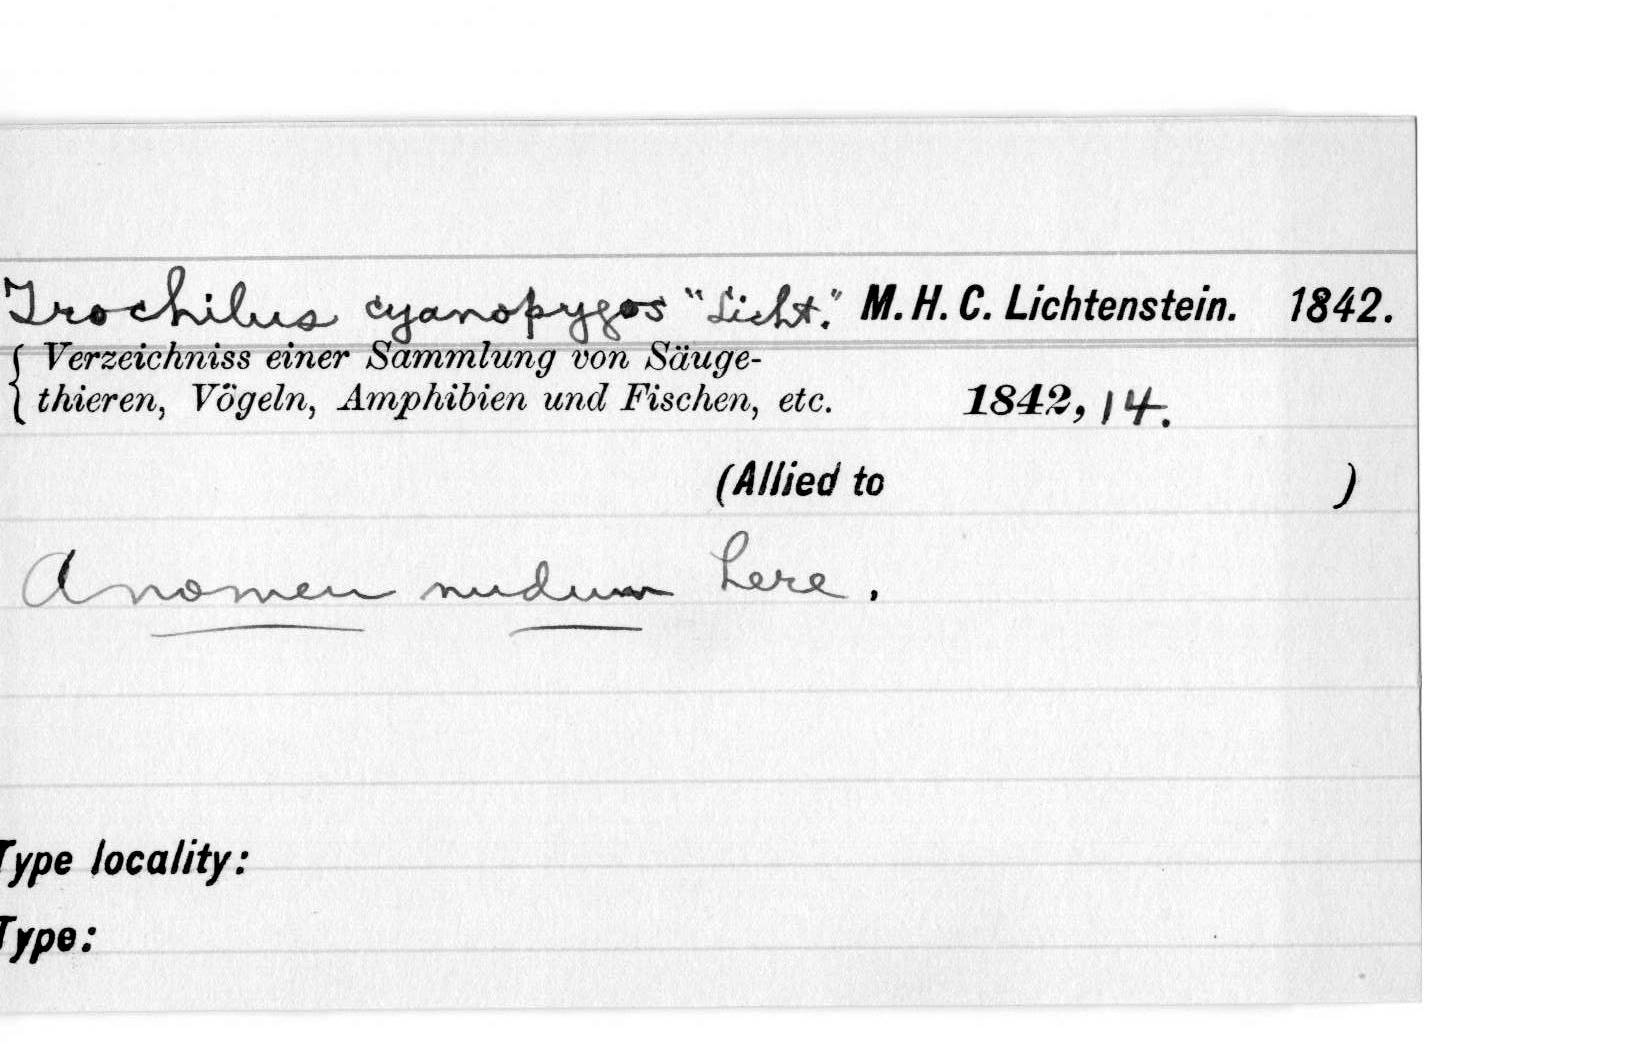 Trochilus cyanopygos "Licht." M. H. C. Lichtenstein. 1842.
{ Verzeichniss einer Sammlung von Säuge-
thieren, Vögeln, Amphibien und Fischen, etc. 1842, 14.
(Allied to )
A nomen nudum here.
Type locality:
Type: